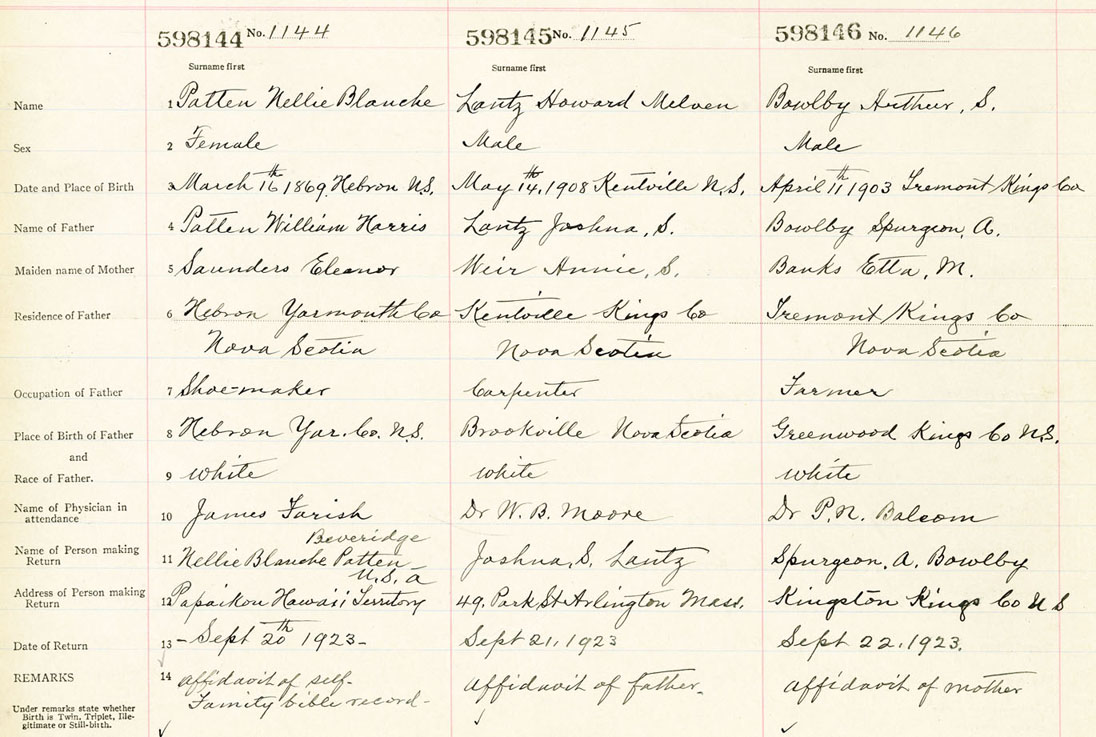 598144 No. 1144 598145 No. 1145 598146 No. 1146
Surname first Surname first Surname first
Name 1 Patten Nellie Blanche Lantz Howard Melven Bowlby Arthur, S.
Sex 2 Female Male Male
Date and Place of Birth 3 March 16th 1869 Hebron N.S. May 14th, 1908 Kentville N.S. April 11th 1903 Tremont Kings Co
Name of Father 4 Patten William Harris Lantz Joshua, S. Bowlby Spurgeon, A.
Maiden name of Mother 5 Saunders Eleanor Weir Annie, S. Banks Etta, M.
Residence of Father 6 Hebron Yarmouth Co Kentville Kings Co Tremont Kings Co
Nova Scotia Nova Scotia Nova Scotia
Occupation of Father 7 Shoe-maker Carpenter Farmer
Place of Birth of Father 8 Hebron Yar. Co. N.S. Brookville Nova Scotia Greenwood Kings Co N.S.
and
Race of Father. 9 White White White
Name of Physician in attendance 10 James Farish Dr W. B. Moore Dr P. N. Balcom
Beveridge
Name of Person making Return 11 Nellie Blanche Patten Joshua, S. Lantz Spurgeon, A. Bowlby
U.S.a
Address of Person making Return 12 Papaikou Hawaii Territory 49, Park St Arlington Mass. Kingston Kings Co N S
Date of Return 13 - Sept 20th 1923 - Sept 21, 1923 Sept 22, 1923.
REMARKS 14 affidavit of self- affidavit of father- affidavit of mother
Family bible record-
Under remarks state whether
Birth is Twin, Triplet, Ille-
gitimate or Still-birth.